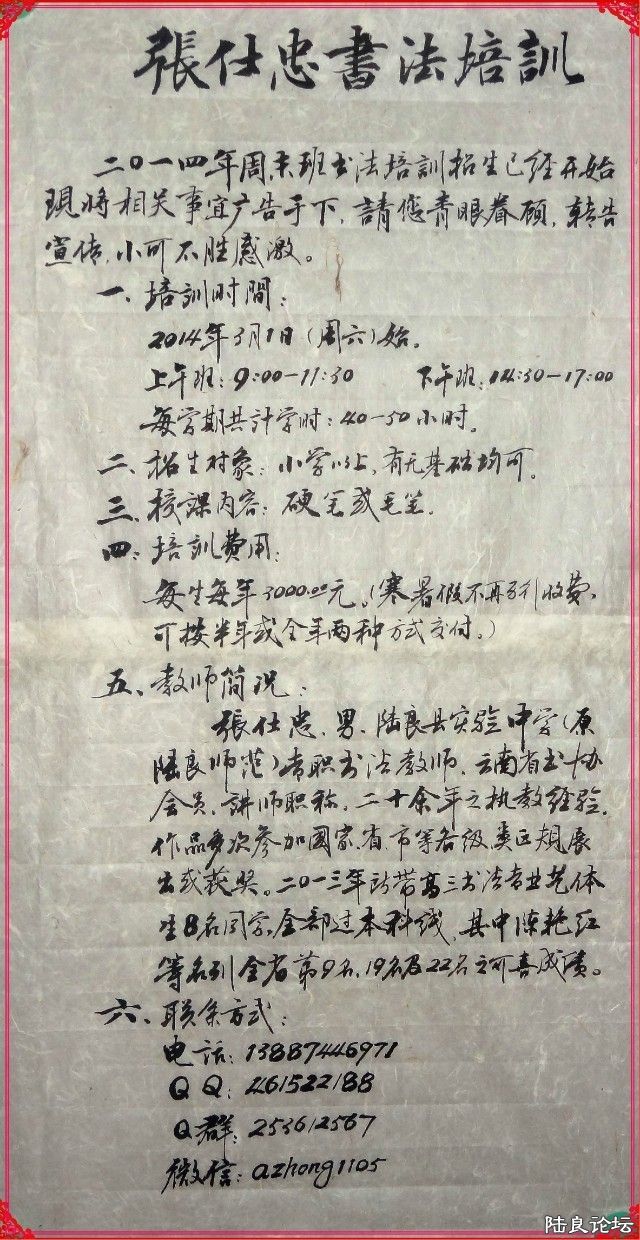 張仕忠書法培訓
二〇一四年周末班书法培訓招生已经开始
現将相关事宜广告于下，請您青眼眷顾，转告
宣传，小可不胜感激。
一、培訓时間：
2014年3月1日（周六）始。
上午班：9:00－11:30 下午班：14:30－17:00
每学期共计学时：40－50小时。
二、招生对象：小学以上，有无基础均可。
三、授课内容：硬笔或毛笔。
四、培訓费用：
每生每年3000.00元。（寒暑假不再另外收费，
可按半年或全年两种方式交付。）
五、教师简况：
張仕忠，男，陆良县实验中学（原
陆良师范）专职书法教师，云南省书协
会员，讲师职称，二十余年之执教经验，
作品多次参加國家、省、市等各级类正规展
出或获奖。二〇一三年所带高三书法专业艺体
生8名同学，全部过本科线，其中陈艳红
等名列全省第9名、19名及22名之可喜成绩。
六、联系方式：
电话：13887446971
QQ：461522188
Q群：253612567
微信：azhong1105
陆良论坛